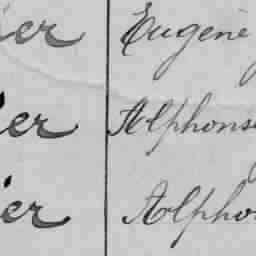 ier Eugene
ier Alphons
ier Alpho